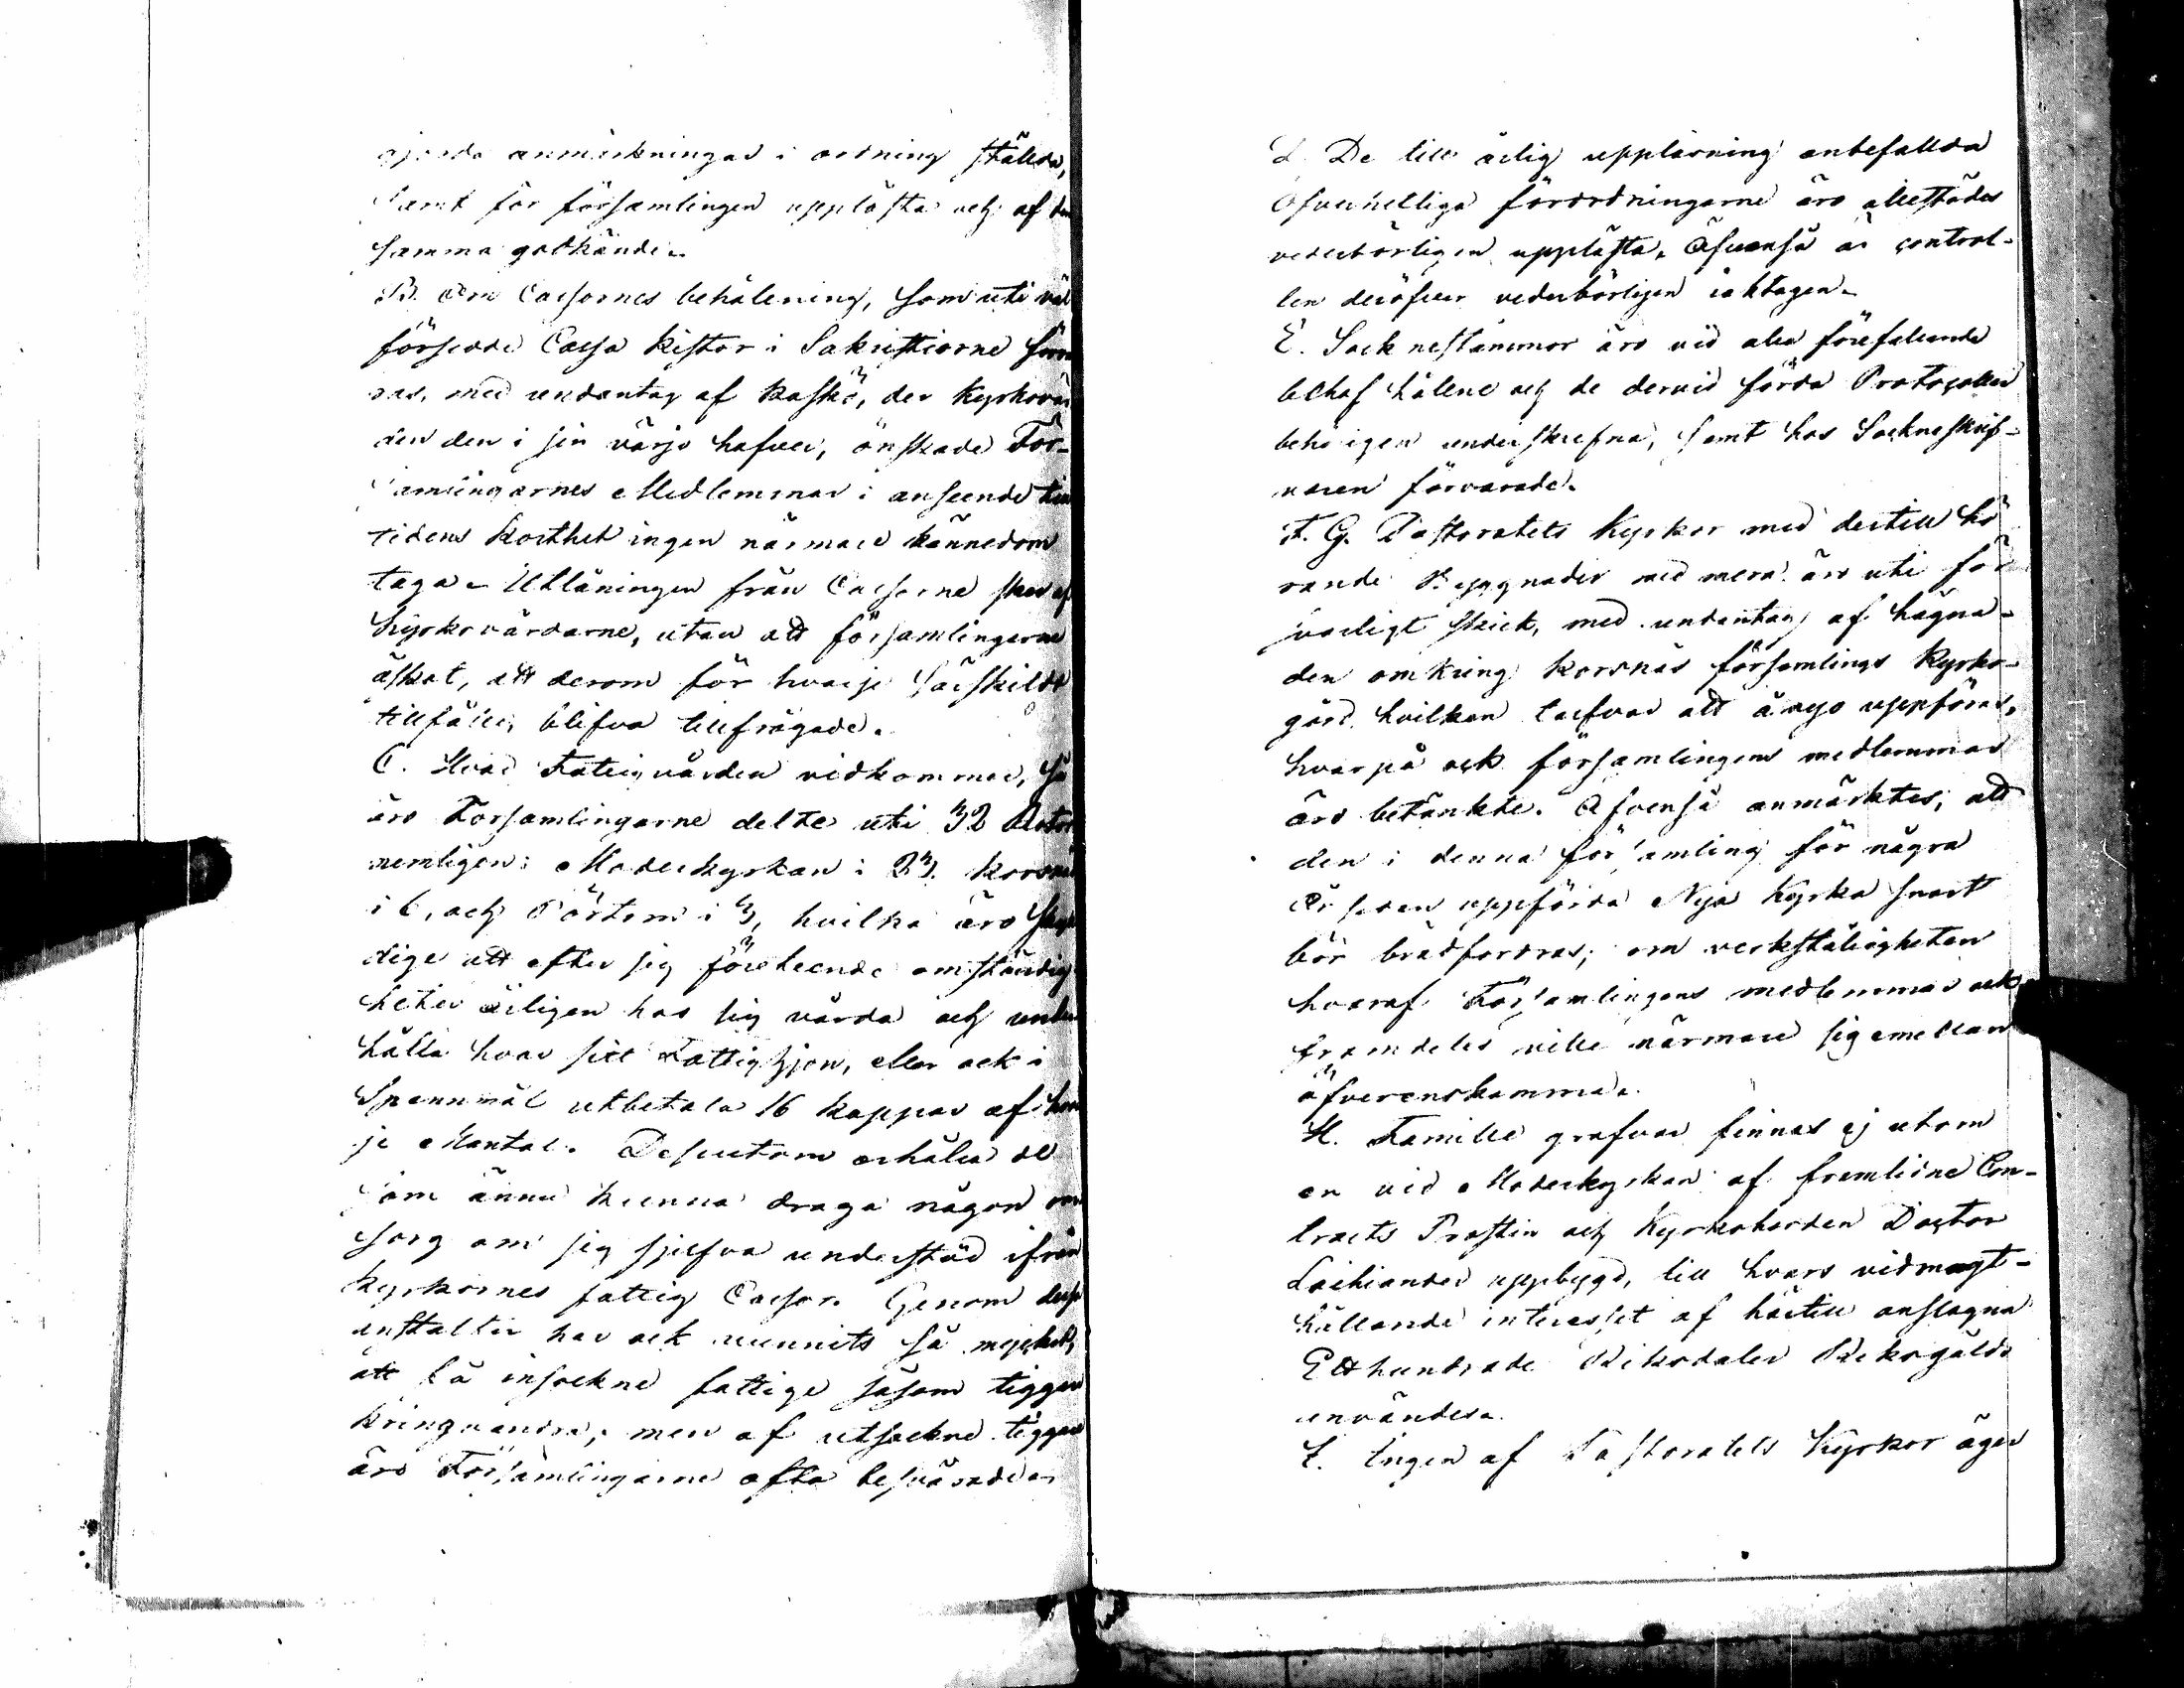 gjorda anmärkningar i ordning stälda,
samt för församlingen upplästa och af den
samma godkände.
B. Om Cassornes behållning, som uti väl
försedde Cassa kistor i Sakristiorne förva
ras, med undantag af Kaskö, der Kyrkovär
den den i sin värjo hafver, önskade För-
samlingarnes Medlemmar i anseende till
tidens korthet ingen närmare kännedom
taga. Utlåningen från Cassorne sker af
Kyrkovärdarne, utan att församlingarne
äskat, att derom för hvarje särskildt
tillfälle, blifva tillfrågade.
C. Hvad Fattigvården vidkommer, så
äro Församlingarne delte uti 32 Rotar
nemligen: Moderkyrkan i 23. Korsnäs
i 6, och Pörtom i 3, hvilka äro skyl
dige att efter sig företeende omständig
heter årligen hos sig vårda och under
hålla hvar sitt Fattighjon, eller ock i
Spannmål utbetala 16 kappar af hvar
je Mantal. Dessutom erhålla de
som ännu kunna draga någon om
sorg om sig sjelfva understöd ifrån
kyrkornes fattig Cassor. Genom dessa
anstalter har ock vunnits så mycket,
att få insockne fattige såsom tiggare
kringvandra; men af utsockne tiggare
äro Församlingarne ofta besvärade.
D. De till årlig uppläsning anbefallda
Öfverhetliga förordningarne äro allestädes
vederbörligen upplästa. Äfvenså är control-
len deröfver vederbörligen iakttagen.
E. Socknestämmor äro vid alla förefallande
behof hållne och de dervid förda Protocoller
behörigen underskrefna, samt hos Sockneskrif-
varen förvarade.
F. G. Pastoratets Kyrkor med dertill hö
rande Byggnader med mera äro uti för
svarligt skick, med undantag af hägna-
den omkring Korsnäs församlings Kyrko-
gård hvilken tarfvar att å nyo uppföras,
hvarpå ock församlingens medlemmar
äro betänkte. Äfvenså anmärktes, att
den i denna församling för några
År sedan uppförda Nya Kyrka snart
bör brädfordras; om verkställigheten
hvaraf Församlingens medlemmar ock
framdeles ville närmare sig emellan
öfverenskomma.
H. Familie grafvar finnas ej utom
en vid Moderkyrkan af framlidne Con-
tracts Prosten och Kyrkoherden Doctor
Laihiander uppbygd, till hvars vidmagt-
hållande interesset af härtill anslagna
Ett hundrade Riksdaler Riksgälds
användes.
I. Ingen af Pastoratets Kyrkor äger